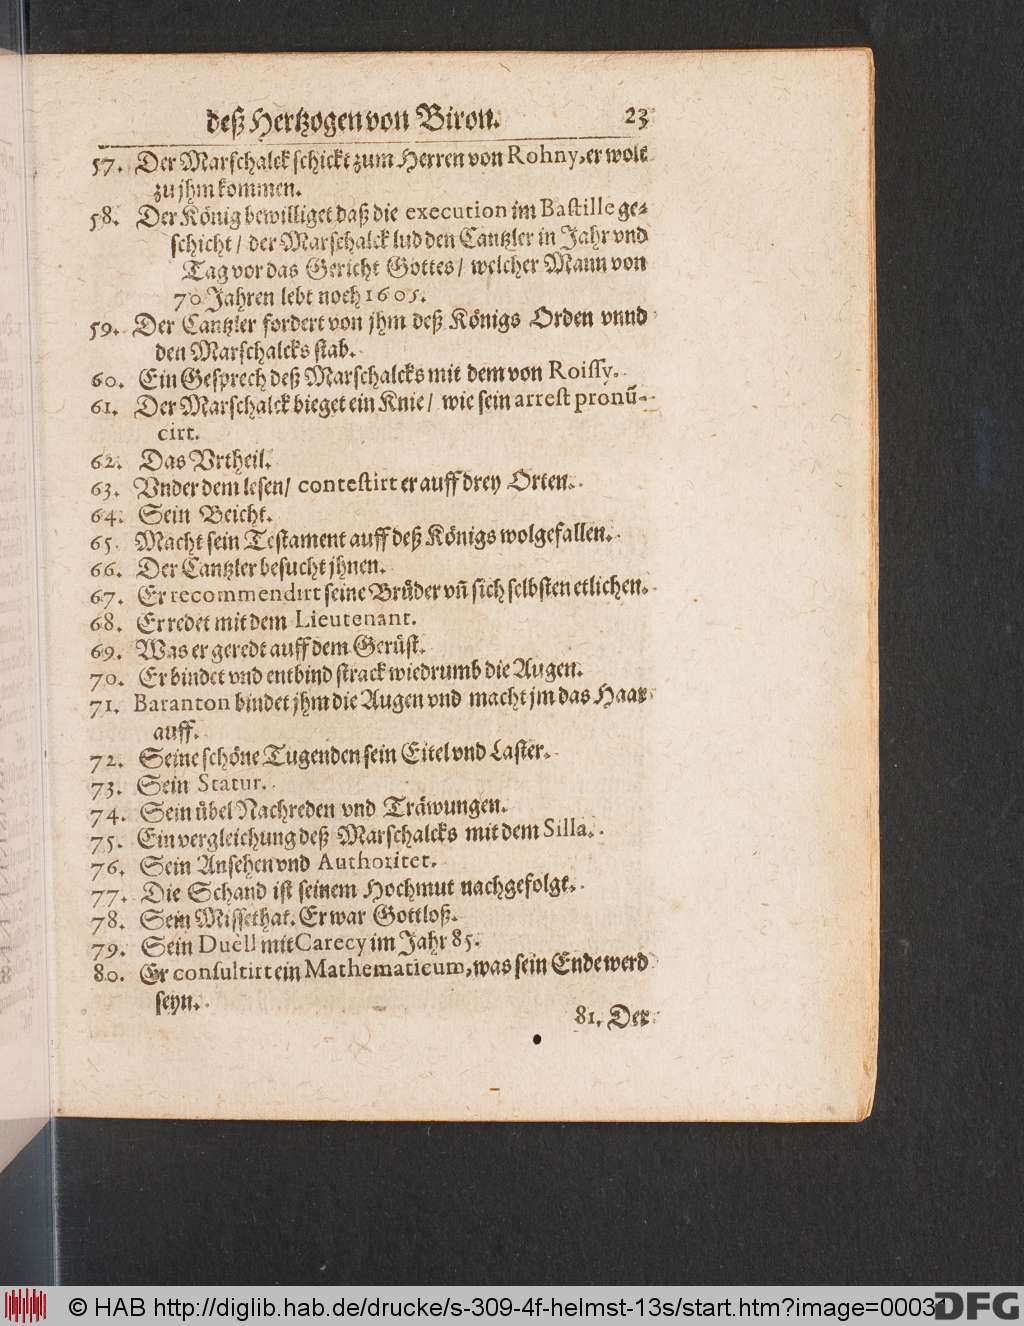 deß Hertzogen von Biron. 23
57. Der Marschalck schickt zum Herren von Rohny, er wolt
zu jhm kommen.
58. Der König bewilliget daß die execution im Bastille ge-
schicht / der Marschalck lud den Cantzler in Jahr vnd
Tag vor das Gericht Gottes / welcher Mann von
70 Jahren lebt noch 1605.
59. Der Cantzler fordert von jhm deß Königs Orden vnnd
den Marschalcks stab.
60. Ein Gesprech deß Marschalcks mit dem von Roissy.
61. Der Marschalck bieget ein Knie / wie sein arrest pronũ-
cirt.
62. Das Vrtheil.
63. Vnder dem lesen / contestirt er auff drey Orten.
64. Sein Beicht.
65. Macht sein Testament auff deß Königs wolgefallen.
66. Der Cantzler besucht jhnen.
67. Er recommendirt seine Brüder vñ sich selbsten etlichen.
68. Er redet mit dem Lieutenant.
69. Was er geredt auff dem Gerüst.
70. Er bindet vnd entbind strack wiedrumb die Augen.
71. Baranton bindet jhm die Augen vnd macht jm das Haar
auff.
72. Seine schöne Tugenden sein Eitel vnd Laster.
73. Sein Statur.
74. Sein übel Nachreden vnd Träwungen.
75. Ein vergleichung deß Marschalcks mit dem Silla.
76. Sein Ansehen vnd Authoritet.
77. Die Schand ist seinem Hochmut nachgefolgt.
78. Sein Missethat. Er war Gottloß.
79. Sein Duèll mit Carecy im Jahr 85.
80. Er consultirt ein Mathematicum, was sein Ende werd
seyn.
81. Der
© HAB http://diglib.hab.de/drucke/s-309-4f-helmst-13s/start.htm?image=00031
DFG